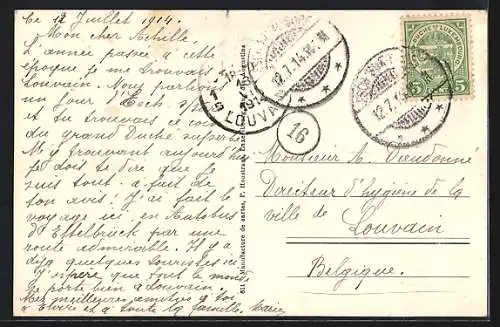 Ce 12 Juillet 1914.
Mon cher Achille,
L'année passée à cette
époque je me trouvais à
Louvain. Nous partions
un jour
et tu trouvais ce
grand Duché superbe
M'y trouvant aujourd'hui
je dois te dire que je
suis tout à fait de
ton avis. J'ai fait le
voyage ici, en Autobus
d'Ettelbrück par une
route admirable. Il y a
déjà quelques touristes ici
J'espère que tout le monde
se porte bien à Louvain.
Mes meilleures amitiés à toi
Elvire et à toute la famille.
811 Manufacture de cartes, P. Houstraas,
12.7.14.
LOUVAIN
1914
16
GRAND-DUCHÉ DE LUXEMBOURG
5 5
12.7.1
Monsieur A. Dieudonné
Directeur d'hygiène de la
ville de
Louvain
Belgique.